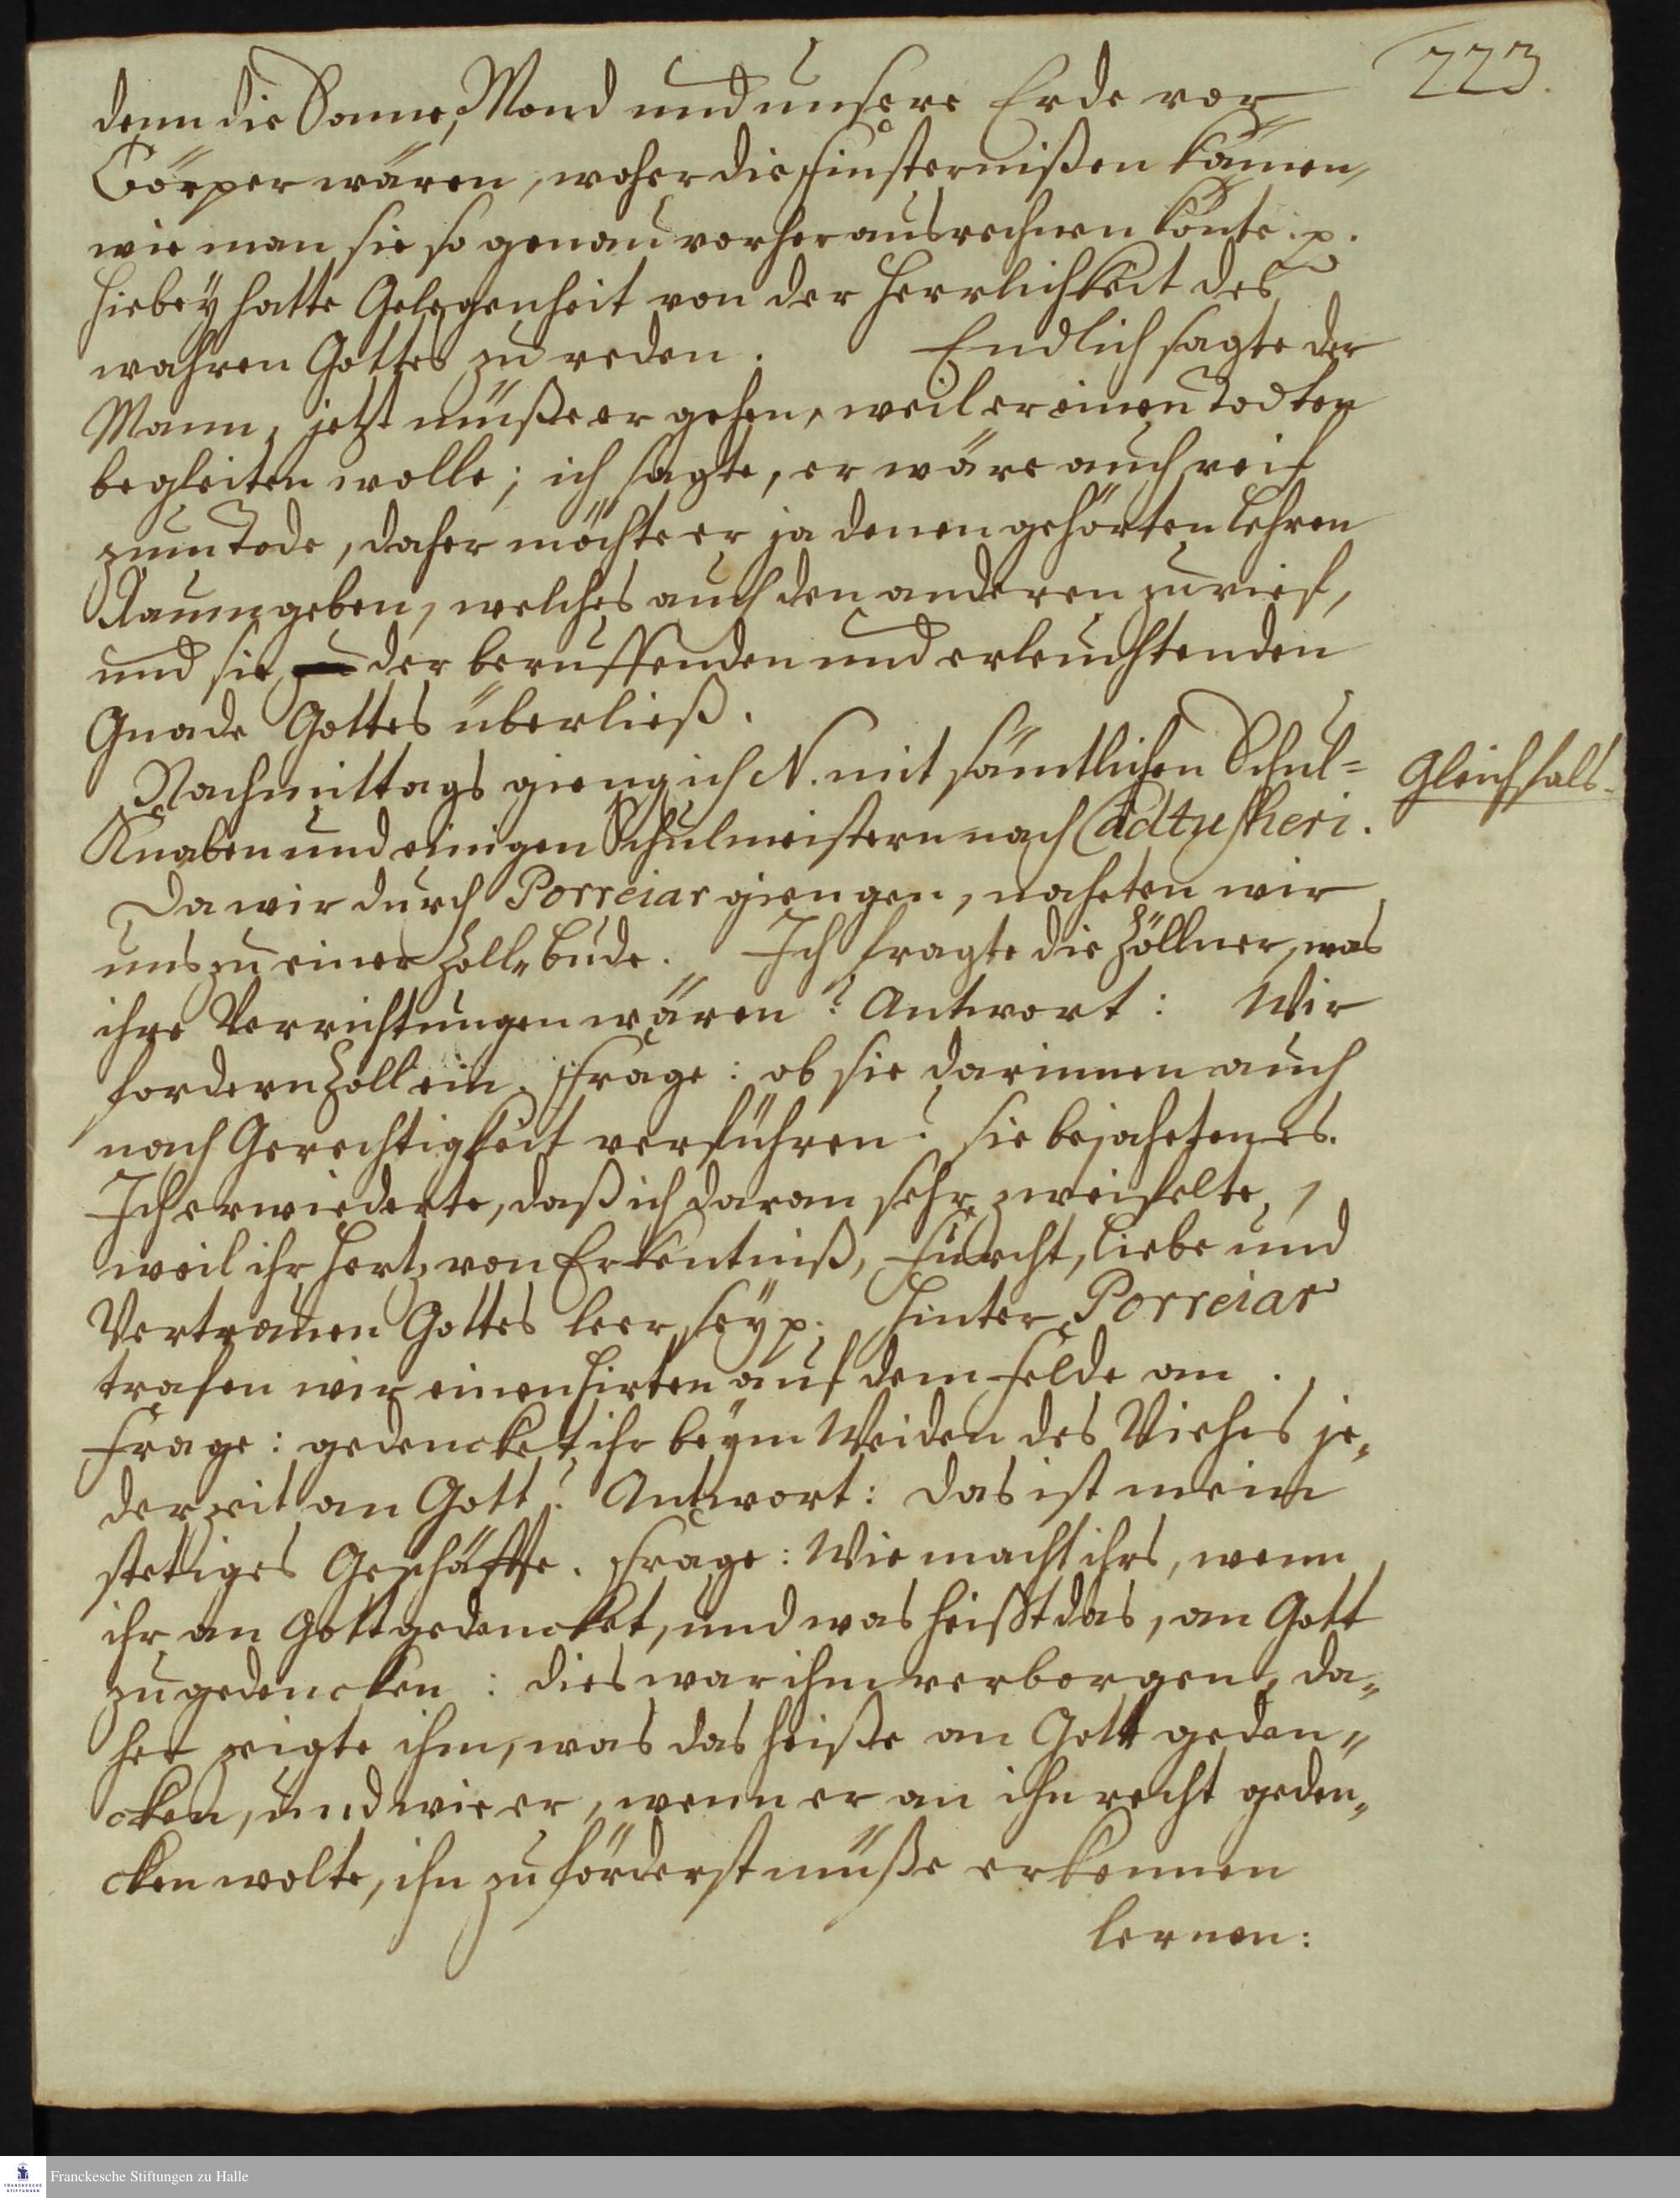 223.
denn die Sonne, Mond und unsere Erde vor
Cörper wären, woher die Finsternißen kämen,
wie man sie so genau vorher ausrechnen könte. p.
Hiebey hatte Gelegenheit von der Herrlichkeit des
wahren Gottes zu reden. Endlich sagte der
Mann, jetzt müße er gehen, weil er einen Todten
begleiten wolle; ich sagte, er wäre auch reif
zum Tode, daher möchte er ja denen gehörten Lehren
Raum geben, welches auch den anderen zurief,
und sie der beruffenden und erleuchtenden
Gnade Gottes überließ.
Nachmittags gieng ich N. mit sämtlichen Schul=
Knaben und einigen Schulmeistern nach Cadtuscheri.
Gleichfals.
Da wir durch Porreiar giengen, naheten wir
uns zu einer Zoll„Bude. Ich fragte die Zöllner, was
ihre Verrichtungen wären? Antwort: Wir
fordern Zoll ein. Frage: ob sie darinnen auch
nach Gerechtigkeit verführen? sie bejaheten es.
Ich erwiederte, daß ich daran sehr zweifelte,
weil ihr Hertz von Erkentniß, Furcht, Liebe und
Vertrauen Gottes leer sey p. Hinter Porreiar
trafen wir einen Hirten auf dem Felde an.
Frage: gedencket ihr beym Weiden des Viehes je„
derzeit an Gott? Antwort: Das ist mein
stetiges Geschäffte. Frage: Wie macht ihrs, wenn
ihr an Gott gedencket, und was heißt das, an Gott
zu gedencken: dies war ihm verborgen, da„
her zeigte ihm, was das heiße an Gott geden„
cken, und wie er, wenn er an ihn recht geden„
cken wolte, ihn zuförderst müße erkennen
lernen:
Franckesche Stiftungen zu Halle